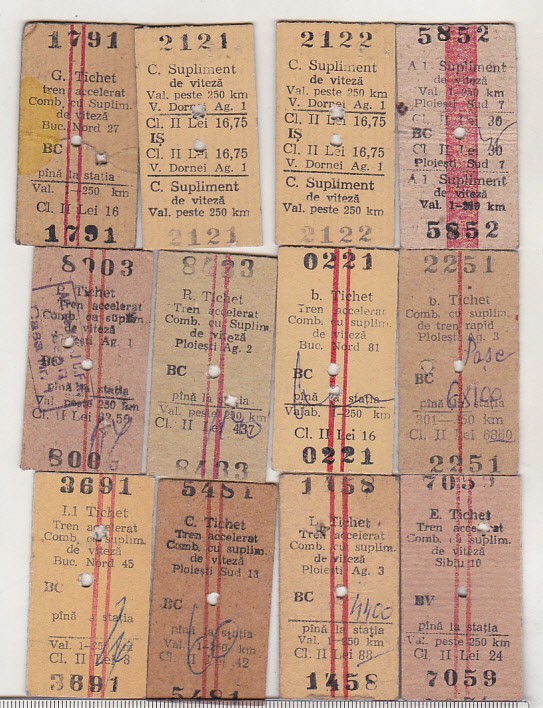 1791
G. Tichet
tren accelerat
Comb. cu Suplim.
de viteză
Buc. Nord 27
BC
pînă la stația
Val. 1-250 km
Cl. II Lei 16
1791
2121
C. Supliment
de viteză
Val. peste 250 km
V. Dornei Ag. 1
Cl. II Lei 16,75
IȘ
Cl. II Lei 16,75
V. Dornei Ag. 1
C. Supliment
de viteză
Val. peste 250 km
2121
2122
C. Supliment
de viteză
Val. peste 250 km
V. Dornei Ag. 1
Cl. II Lei 16,75
IȘ
Cl. II Lei 16,75
V. Dornei Ag. 1
C. Supliment
de viteză
Val. peste 250 km
2122
5852
A 1 Supliment
de viteză
Val. 1-250 km
Ploiești Sud 7
Cl. II Lei 30
BC
Cl. II Lei 30
Ploiești Sud 7
A 1 Supliment
de viteză
Val. 1-250 km
5852
8003
Tichet
Tren accelerat
Comb. cu suplim.
de viteză
Ag. 1
BC
pînă la stația
Val. peste 250 km
Cl. II Lei
8003
8433
R. Tichet
Tren accelerat
Comb. cu Suplim.
de viteză
Ploiești Ag. 2
BC
pînă la stația
Val. peste 250 km
Cl. II Lei 437
8433
0221
b. Tichet
Tren accelerat
Comb. cu suplim.
de viteză
Buc. Nord 81
BC
pînă la stația
Valab. 1-250 km
Cl. II Lei 16
0221
2251
b. Tichet
Comb. cu suplim.
de tren rapid
Ploiești Ag. 3
BC
pînă la stația
301-350 km
Cl. II Lei 6860
2251
3691
I.1 Tichet
Tren accelerat
Comb, cu suplim.
de viteză
Buc. Nord 45
BC
pînă la stația
Val. 1-250 km
Cl. II Lei 8
3691
5481
C. Tichet
Tren accelerat
Comb, cu suplim.
de viteză
Ploiești Sud 13
BC
pînă la stația
Val. 1-250 km
Cl. II Lei 42
5481
1458
I. Tichet
Tren accelerat
Comb, cu suplim.
de viteză
Ploiești Ag. 3
BC
4400
pînă la stația
Val. 1-250 km
Cl. II Lei 88
1458
7059
E. Tichet
Tren accelerat
Comb, cu suplim.
de viteză
Sibiu 10
BV
pînă la stația
Val. peste 250 km
Cl. II Lei 24
7059